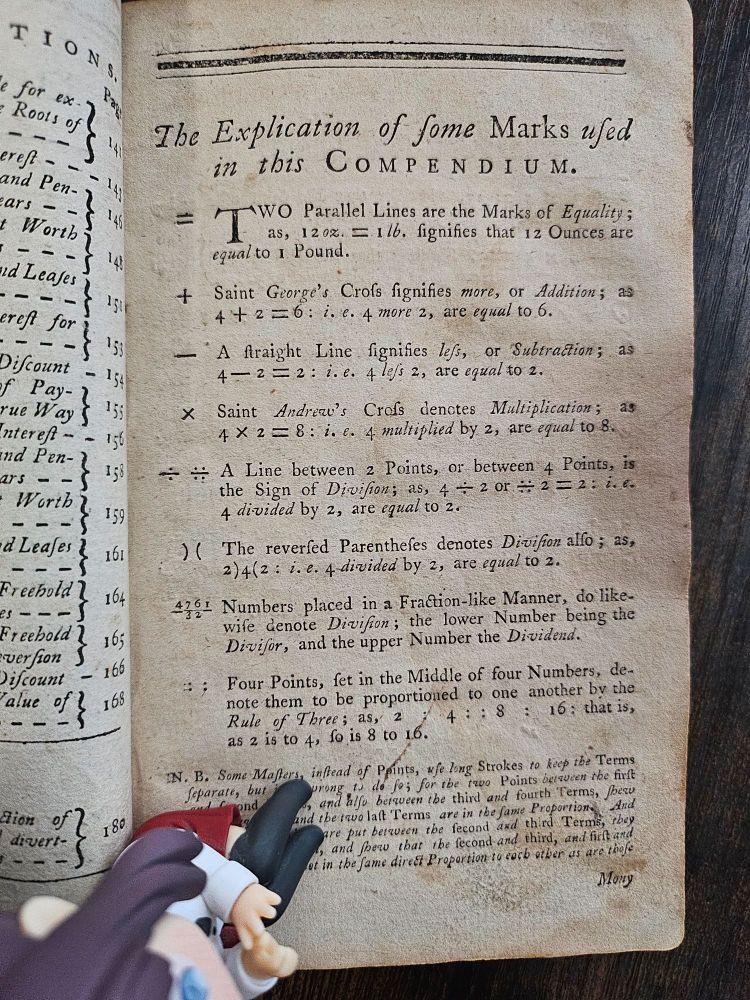 TIONS.
Page
le for ex-
e Roots of
141
erest
143
and Pen-
ears
146
t Worth
148
nd Leaſes
151
ereſt for
153
Diſcount
154
of Pay-
rue Way
155
Intereſt
156
and Pen-
ars
158
t Worth
159
nd Leaſes
161
Freehold
es
164
Freehold
verſion
165
Diſcount
166
Value of
168
ction of
d divert-
180
The Explication of ſome Marks uſed
in this COMPENDIUM.
= TWO Parallel Lines are the Marks of Equality;
as, 12 oz. = 1 lb. ſignifies that 12 Ounces are
equal to 1 Pound.
+ Saint George's Croſs ſignifies more, or Addition; as
4 + 2 = 6: i. e. 4 more 2, are equal to 6.
— A ſtraight Line ſignifies leſs, or Subtraction; as
4 — 2 = 2: i. e. 4 leſs 2, are equal to 2.
× Saint Andrew's Croſs denotes Multiplication; as
4 × 2 = 8: i. e. 4 multiplied by 2, are equal to 8.
÷ ÷ A Line between 2 Points, or between 4 Points, is
the Sign of Diviſion; as, 4 ÷ 2 or ÷ 2 = 2: i. e.
4 divided by 2, are equal to 2.
)( The reverſed Parentheſes denotes Diviſion alſo; as,
2)4(2: i. e. 4 divided by 2, are equal to 2.
4761/32 Numbers placed in a Fraction-like Manner, do like-
wiſe denote Diviſion; the lower Number being the
Diviſor, and the upper Number the Dividend.
:: ; Four Points, ſet in the Middle of four Numbers, de-
note them to be proportioned to one another by the
Rule of Three; as, 2 : 4 : : 8 : 16: that is,
as 2 is to 4, ſo is 8 to 16.
N. B. Some Maſters, inſtead of Points, uſe long Strokes to keep the Terms
ſeparate, but wrong to do ſo; for the two Points between the firſt
and ſecond and alſo between the third and fourth Terms, ſhew
and the two laſt Terms are in the ſame Proportion. And
are put between the ſecond and third Terms, they
and ſhew that the ſecond and third, and firſt and
not in the ſame direct Proportion to each other as are thoſe
Mony